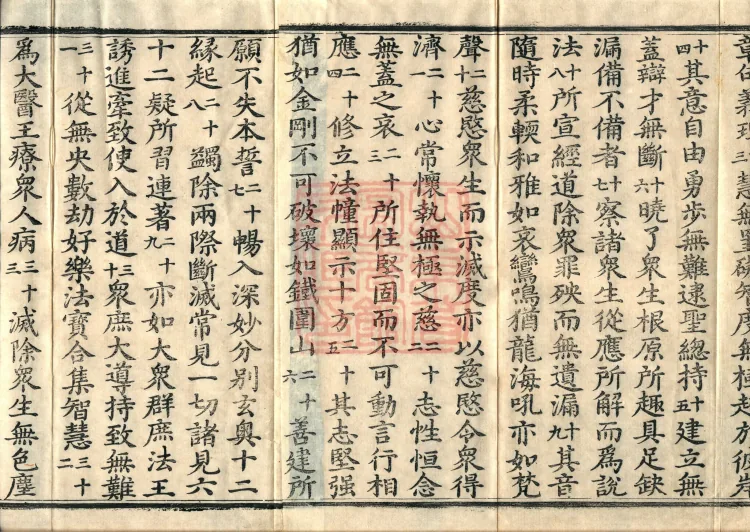 三慧無罣礙智度無極赴於彼岸
十四其意自由勇步無難逮聖總持十五建立無
蓋辯才無斷十六曉了衆生根原所趣具足缺
漏備不備者十七察諸衆生從應所解而爲說
法十八所宣經道除衆罪殃而無遺漏十九其音
隨時柔輭和雅如哀鸞鳴猶龍海吼亦如梵
聲二十慈愍衆生而示滅度亦以慈愍令衆得
濟二十一心常懷執無極之慈二十二志性恒念
無蓋之哀二十三所住堅固而不可動言行相
應二十四修立法幢顯示十方二十五其志堅强
猶如金剛不可破壞如鐵圍山二十六善建所
願不失本誓二十七暢入深妙分别玄奥十二
緣起二十八蠲除兩際斷滅常見一切諸見六
十二疑所習連著二十九亦如大衆群庶法王
誘進牽致使入於道三十衆庶大導持致無難
三十一從無央數劫好樂法寶合集智慧三十二
爲大醫王療衆人病三十三滅除衆生無色塵